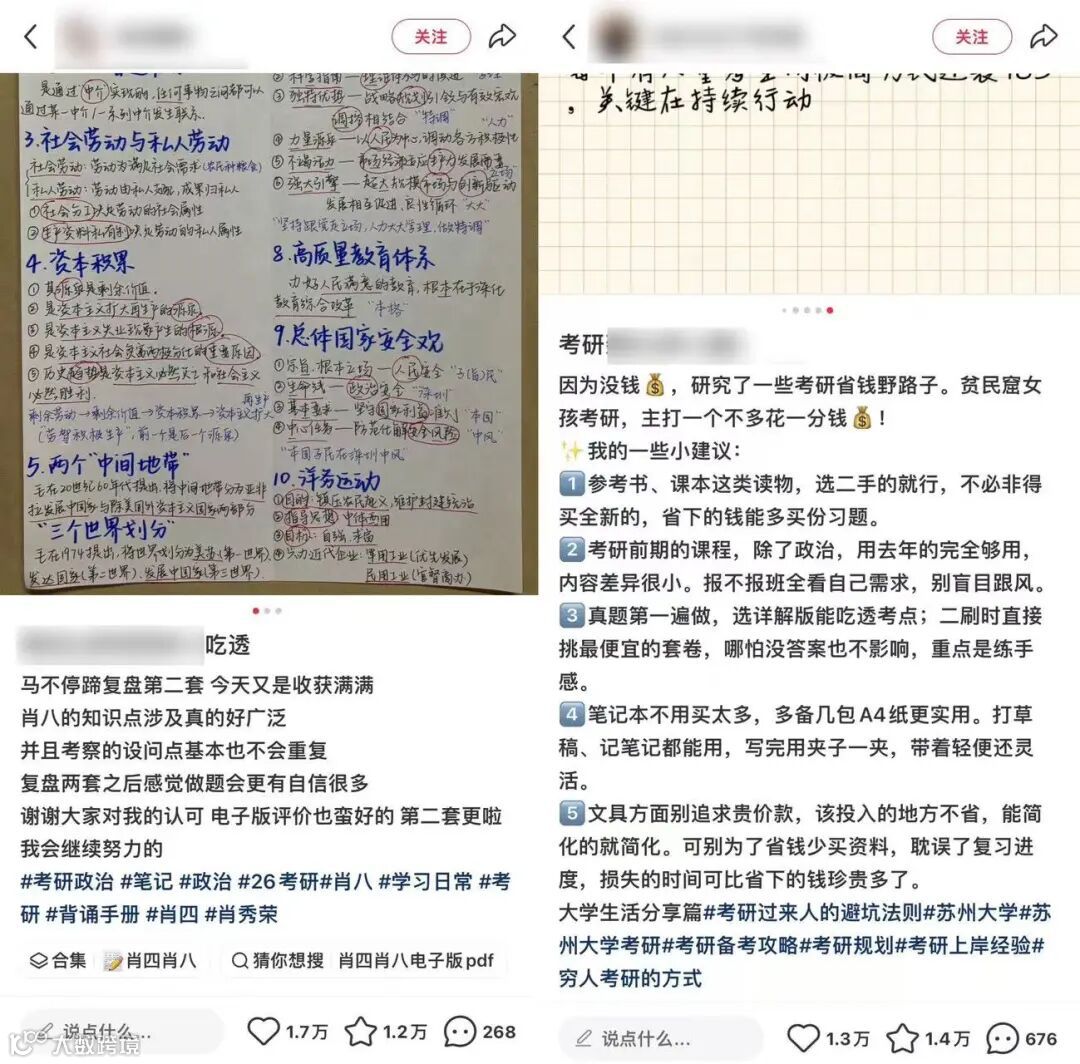 关注
是通过中介实现的,任何事物之间都可以
通过某一中介/一系列中介发生联系.
3.社会劳动与私人劳动
社会劳动:劳动为满足社会需求(农民种粮食)
私人劳动:劳动由私人支配,成果归私人
①社会分工决定劳动的社会属性
②生产资料私有制决定劳动的私人属性
4.资本积累
①其源泉是剩余价值.
②是资本主义扩大再生产的源泉.
③是资本主义失业现象产生的根源.
④是资本主义社会贫富两极分化的重要原因.
⑤历史趋势是资本主义必然灭亡和社会主义
必然胜利.
再生产
剩余劳动→剩余价值→资本积累→资本主义扩大
5.两个"中间地带"
毛在20世纪60年代提出,将中间地带分为亚非
拉发展中国家与除美国外资本主义国家两部分
"三个世界划分"
毛在1974提出,将世界划分为美苏(第一世界)
发达国家(第二世界)、发展中国家(第三世界).
③独特优势——战略规划引领与有效宏观
调控相结合 "特调"
"人力"
④力量源泉——以人民为中心,调动各方积极性
⑤不竭活力——
⑥强大引擎——超大规模市场与创新驱动
发展相互促进、良性循环 "大大"
8.高质量教育体系
办好人民满意的教育,根本在于深化
教育综合改革 "本格"
9.总体国家安全观
①宗旨、根本立场——人民安全
②生命线——政治安全 "深圳"
③基本要求——坚守国家利益 "本国"
④中心任务——防范化解安全风险 "中风"
"本国子民在深圳中风"
10.洋务运动
①目的:镇压农民起义,维护封建统治
②指导思想:中体西用
③目标:自强、求富
④兴办近代企业:军用工业(优先发展)
民用工业(官督商办)
吃透
马不停蹄复盘第二套 今天又是收获满满
肖八的知识点涉及真的好广泛
并且考察的设问点基本也不会重复
复盘两套之后感觉做题会更有自信很多
谢谢大家对我的认可 电子版评价也蛮好的 第二套更啦
我会继续努力的
#考研政治 #笔记 #政治 #26考研#肖八 #学习日常 #考
研 #背诵手册 #肖四 #肖秀荣
合集 肖四肖八 猜你想搜 肖四肖八电子版pdf
说点什么... 1.7万 1.2万 268
大数跨境
关注
,关键在持续行动
考研
因为没钱💰,研究了一些考研省钱野路子。贫民窟女
孩考研,主打一个不多花一分钱💰!
✨我的一些小建议:
1️⃣参考书、课本这类读物,选二手的就行,不必非得
买全新的,省下的钱能多买份习题。
2️⃣考研前期的课程,除了政治,用去年的完全够用,
内容差异很小。报不报班全看自己需求,别盲目跟风。
3️⃣真题第一遍做,选详解版能吃透考点;二刷时直接
挑最便宜的套卷,哪怕没答案也不影响,重点是练手
感。
4️⃣笔记本不用买太多,多备几包A4纸更实用。打草
稿、记笔记都能用,写完用夹子一夹,带着轻便还灵
活。
5️⃣文具方面别追求贵价款,该投入的地方不省,能简
化的就简化。可别为了省钱少买资料,耽误了复习进
度,损失的时间可比省下的钱珍贵多了。
大学生活分享篇#考研过来人的避坑法则#苏州大学#苏
州大学考研#考研备考攻略#考研规划#考研上岸经验#
穷人考研的方式
说点什么... 1.3万 1.4万 676